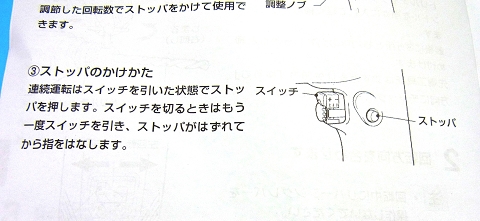 調節した回転数でストッパをかけて使用で
きます。
調整ノブ
③ストッパのかけかた
連続運転はスイッチを引いた状態でストッ
パを押します。スイッチを切るときはもう
一度スイッチを引き、ストッパがはずれて
から指をはなします。
スイッチ
ストッパ